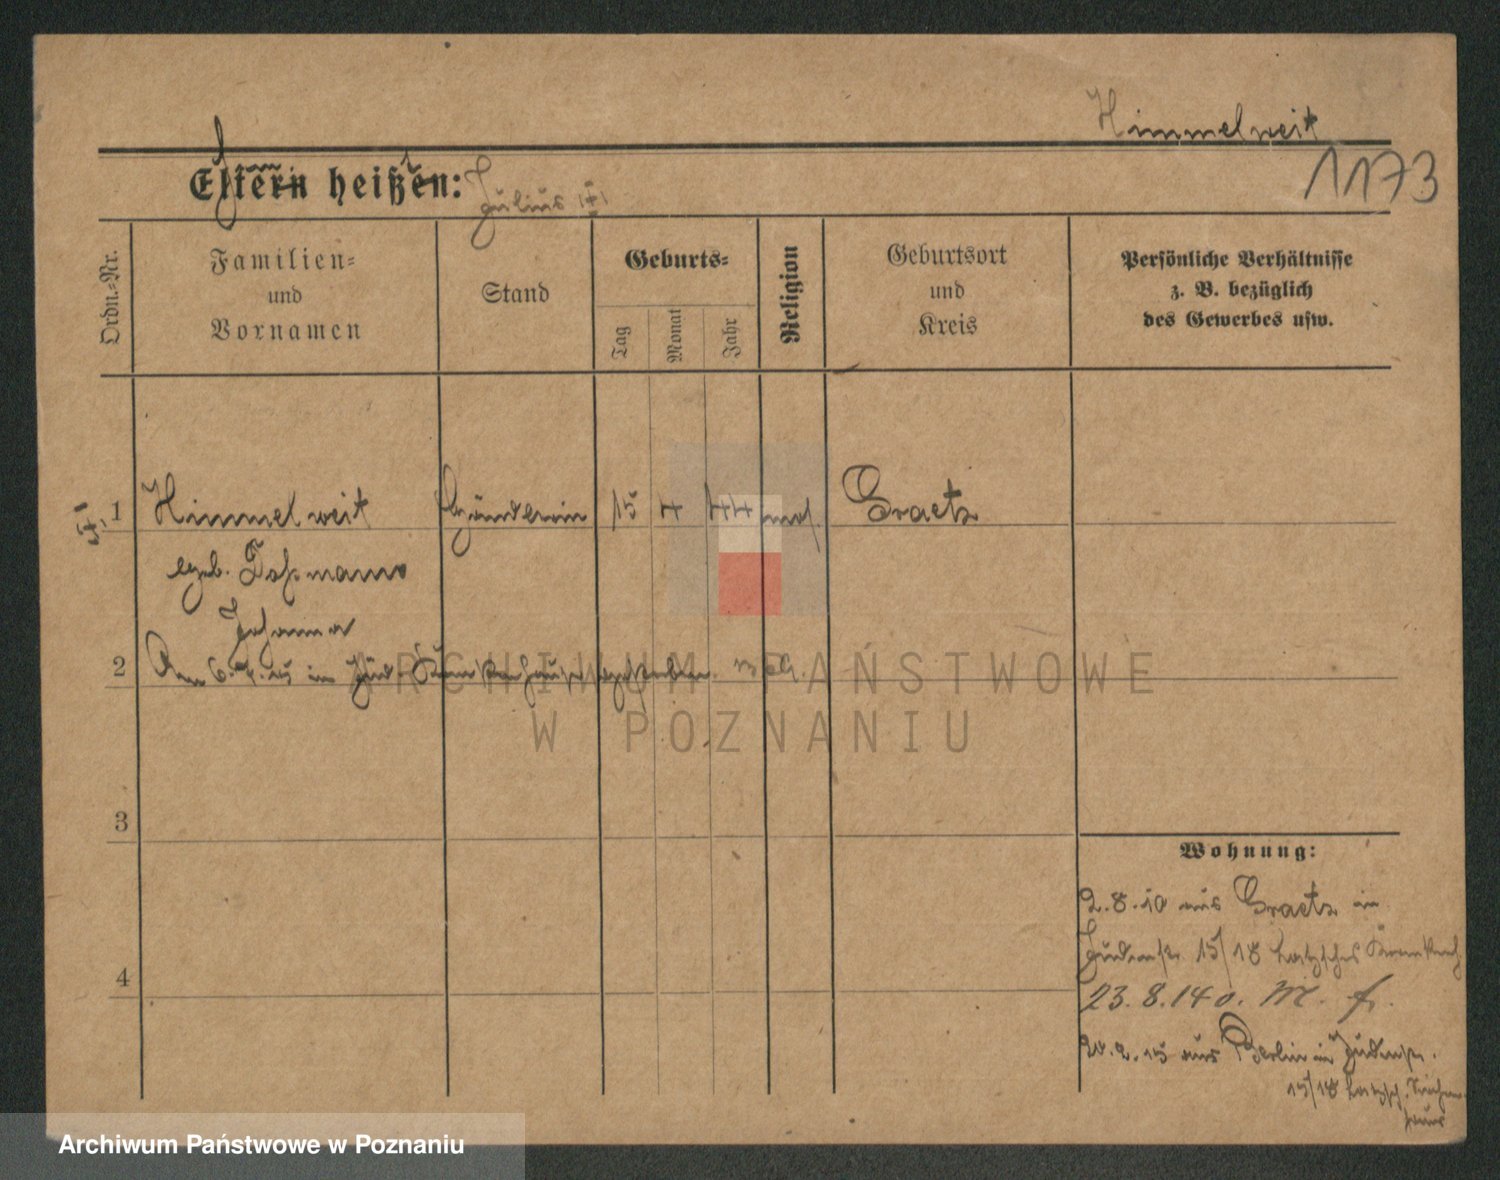 Himmelweit
1173
Eltern heißen: Julius
Ordn.-Nr.
Familien-
und
Vornamen
Stand
Geburts-
Tag
Monat
Jahr
Religion
Geburtsort
und
Kreis
Persönliche Verhältnisse
z. B. bezüglich
des Gewerbes usw.
1 Himmelweit 15 4 44 mos. Graetz
geb.
Johanna
2 Am 6.4.15 im Jüd. Krankenhause gestorben.
3
4
Wohnung:
2.8.10 aus Graetz in
Judenstr 15/18
23.8.14 o. M. f.
aus Berlin in Judenstr.
15/18
haus
ARCHIWUM PAŃSTWOWE
W POZNANIU
Archiwum Państwowe w Poznaniu